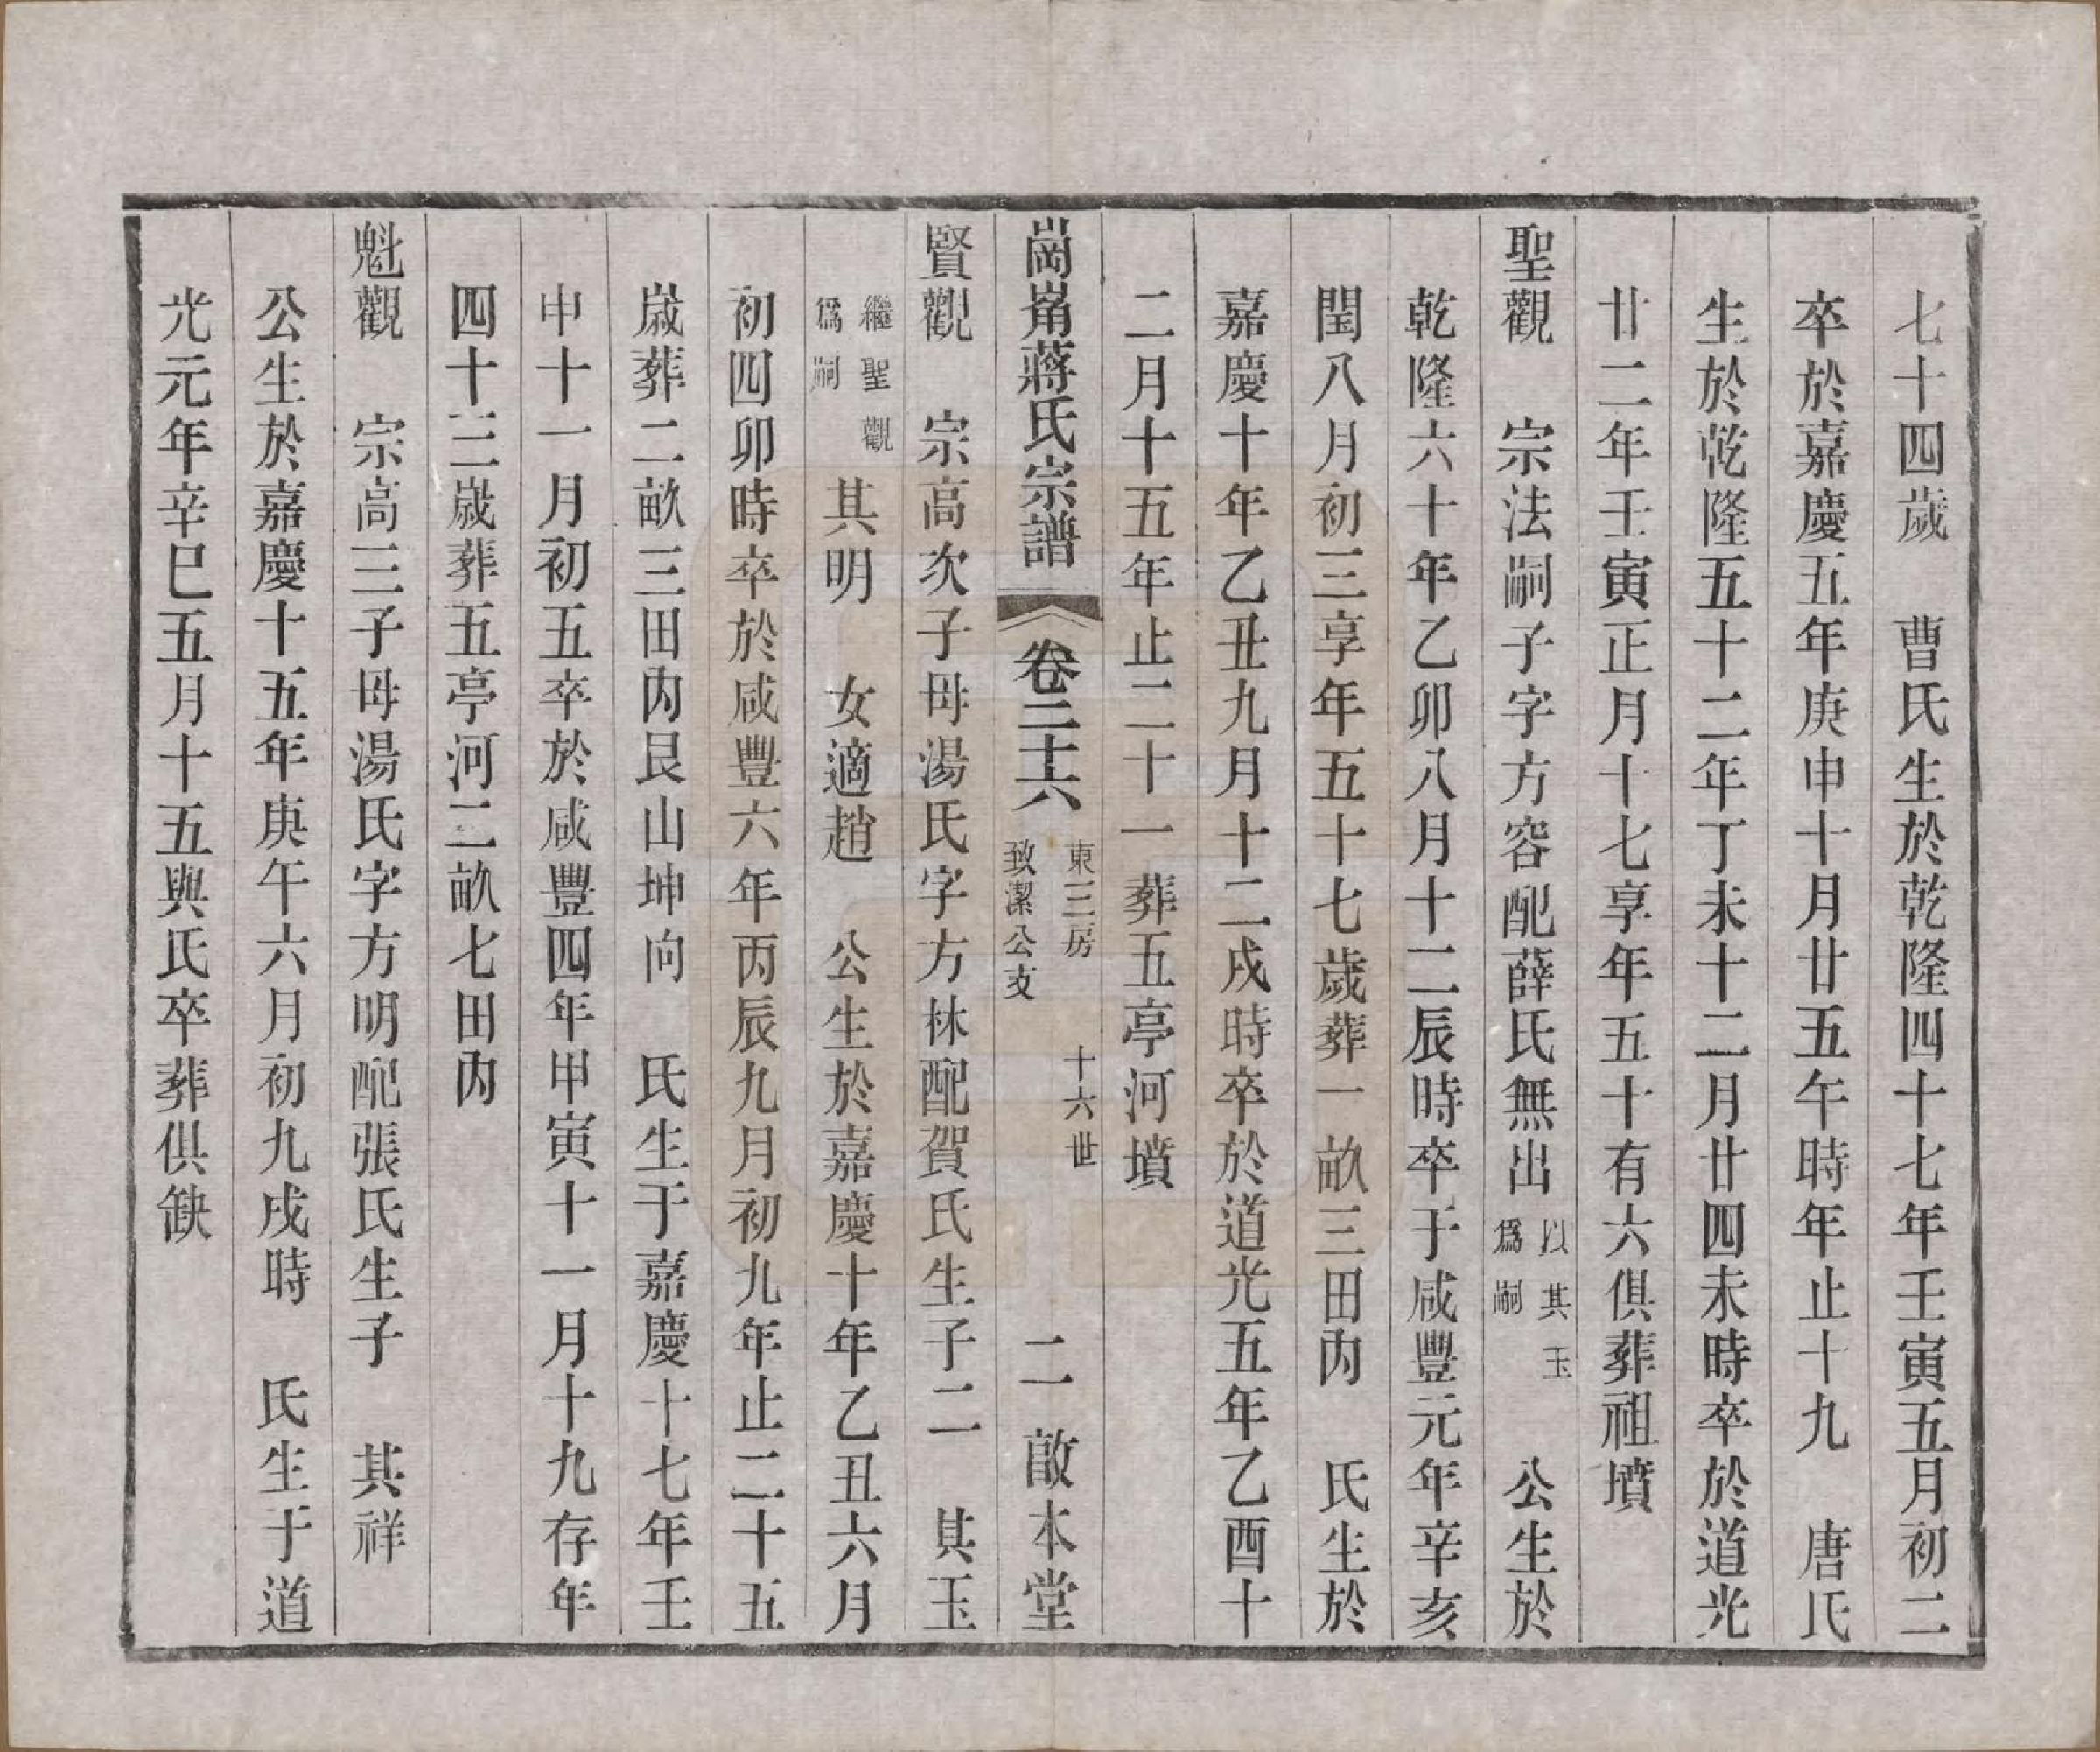 七十四歲　曹氏生於乾隆四十七年壬寅五月初二
卒於嘉慶五年庚申十月廿五午時年止十九　唐氏
生於乾隆五十二年丁未十二月廿四未時卒於道光
廿二年壬寅正月十七享年五十有六俱葬祖墳
聖觀　宗法嗣子字方容配薛氏無出以其玉爲嗣　公生於
乾隆六十年乙卯八月十二辰時卒于咸豐元年辛亥
閏八月初三享年五十七歲葬一畝三田內　氏生於
嘉慶十年乙丑九月十二戌時卒於道光五年乙酉十
二月十五年止二十一葬五亭河墳
崗崙蔣氏宗譜　卷二十六　東三房致潔公支　十六世　二　啟本堂
賢觀　宗高次子母湯氏字方林配賀氏生子二　其玉
繼聖觀爲嗣　其明　女適趙　公生於嘉慶十年乙丑六月
初四卯時卒於咸豐六年丙辰九月初九年止二十五
歲葬二畝三田內艮山坤向　氏生于嘉慶十七年壬
申十一月初五卒於咸豐四年甲寅十一月十九存年
四十三歲葬五亭河二畝七田內
魁觀　宗高三子母湯氏字方明配張氏生子　其祥
公生於嘉慶十五年庚午六月初九戌時　氏生于道
光元年辛巳五月十五與氏卒葬俱缺